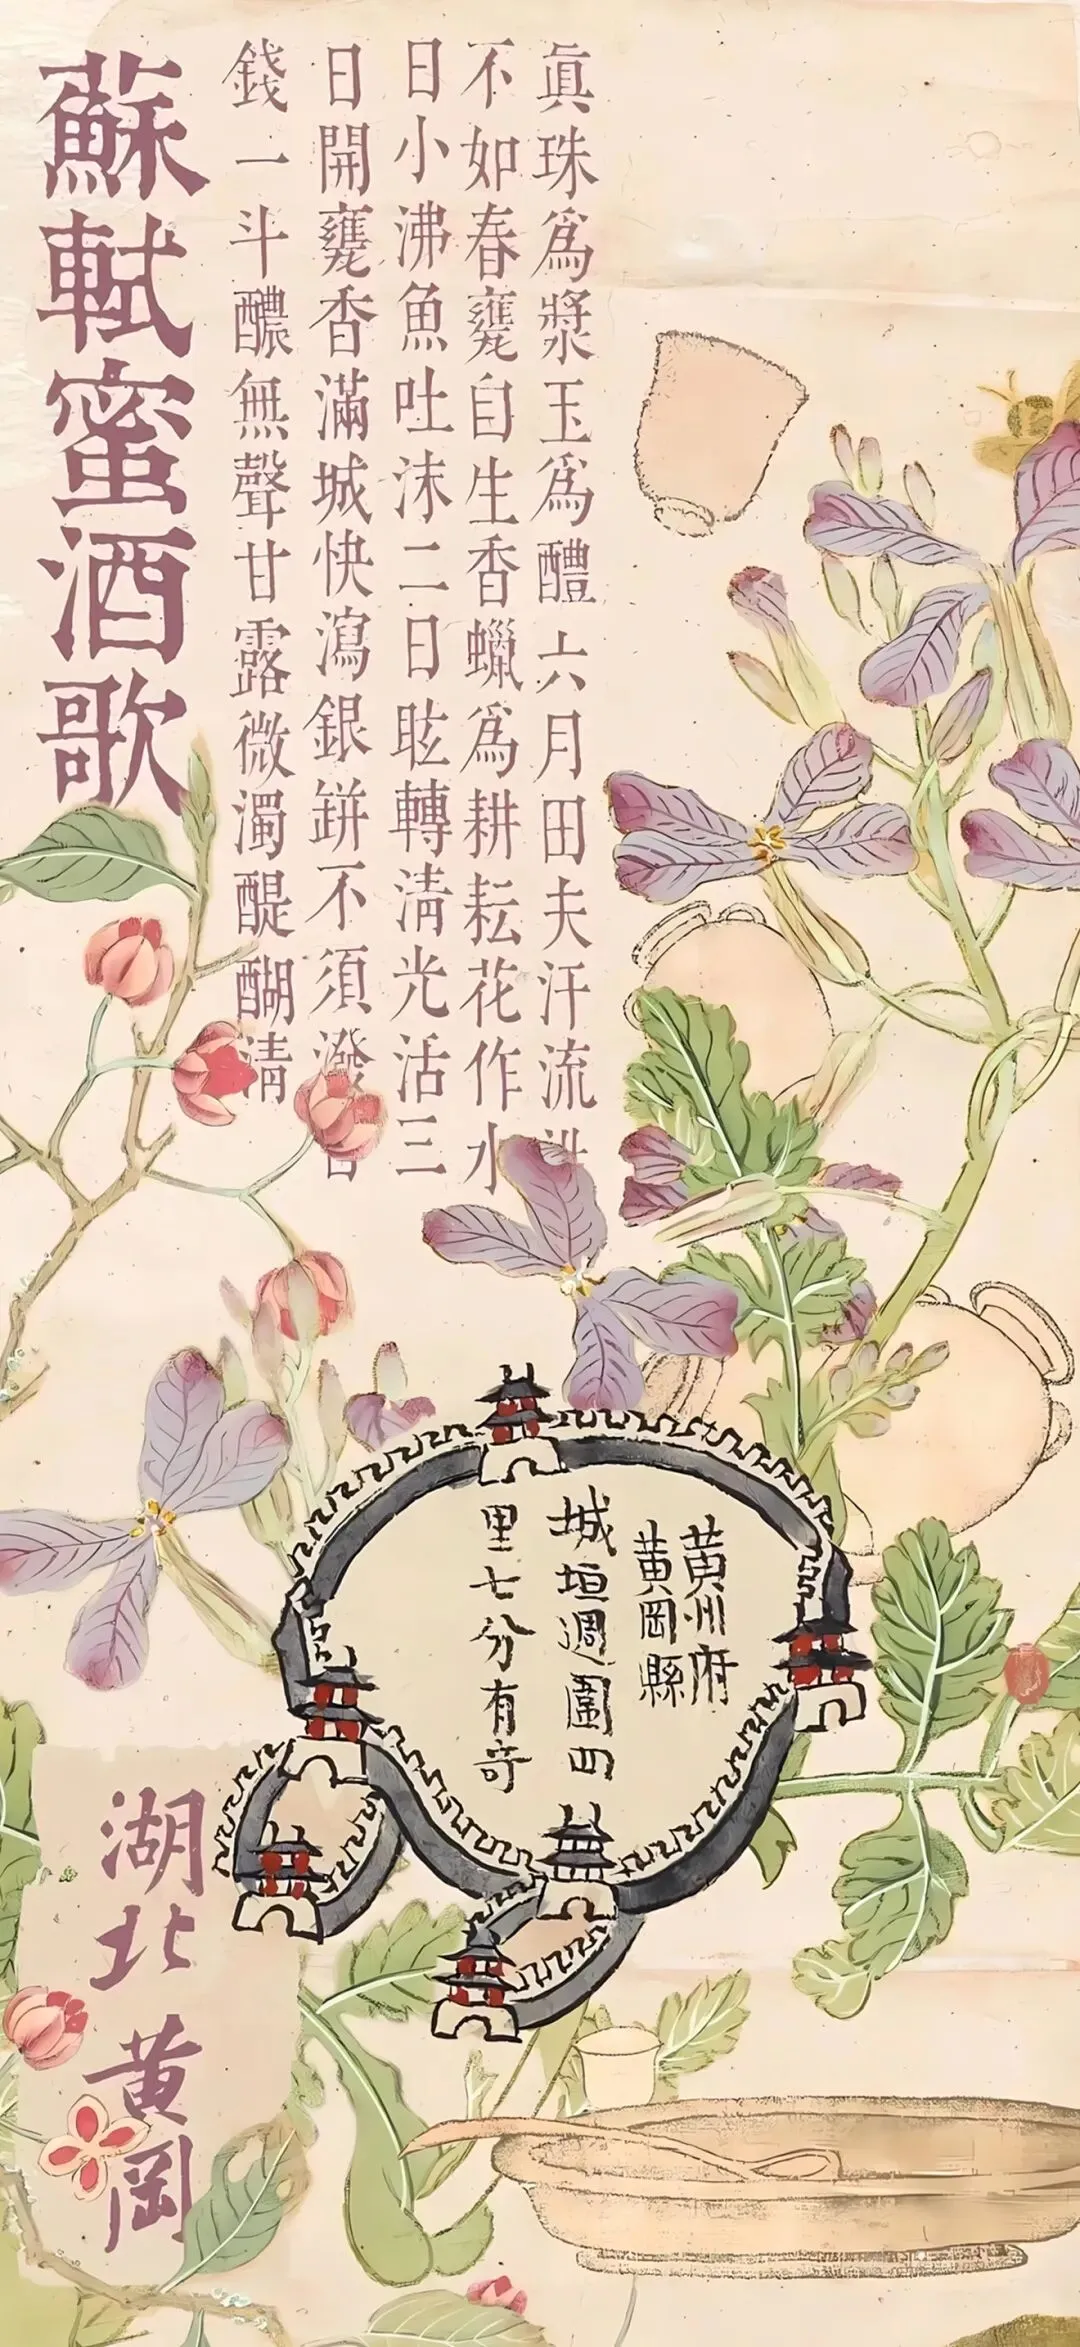 眞珠爲漿玉爲醴六月田夫汗流
不如春甕自生香蠟爲耕耘花作水
日小沸魚吐沫二日眩轉清光活三
日開甕香滿城快瀉銀缾不須
錢一斗醲無聲甘露微濁醍醐清
蘇軾蜜酒歌
黃州府
黃岡縣
城垣週圍四
里七分有奇
湖北黄岡